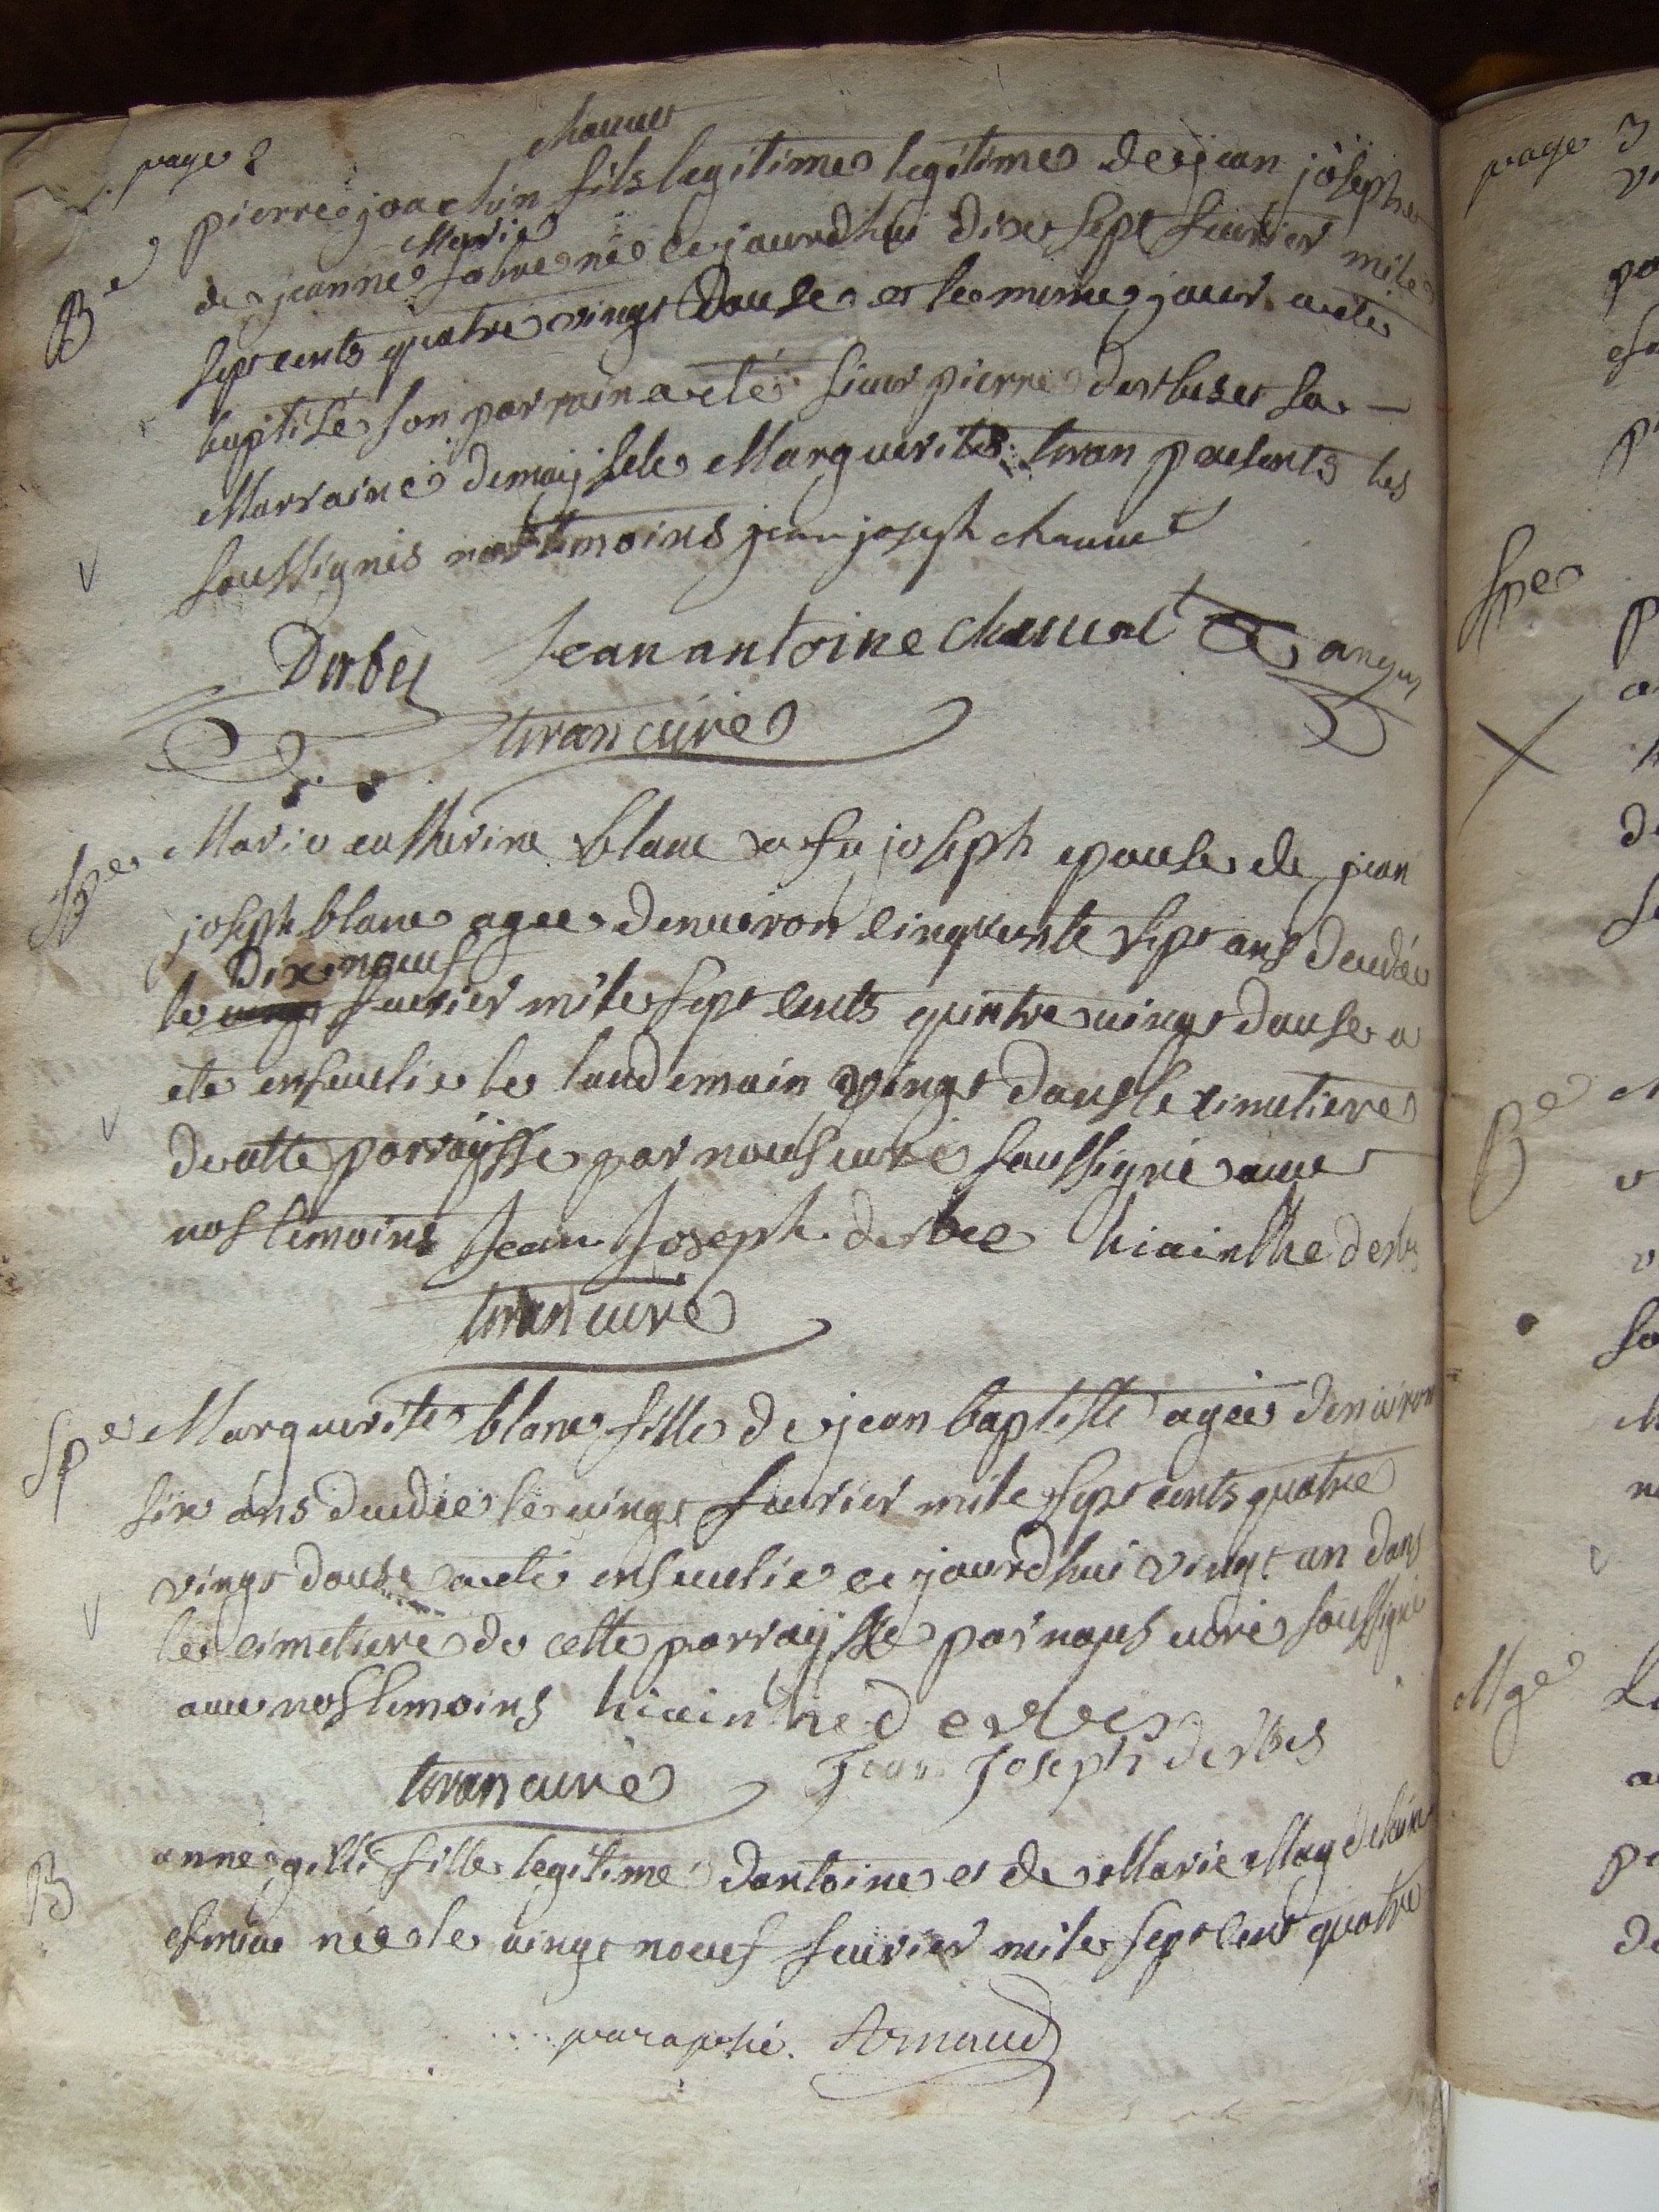 page 2
chauuet
Be pierre joachin fils legitime legitime de jean joseph
Marie
de jeanne fabre né ce jourdhui dixe sept feurier mile
sept cents quatre vingt douse et le meme jour a eté
baptisé son parrain a eté sieur pierre derbes et sa
Marraine demoyselle Marguerite tiran presents les
soussignés nos temoins jean joseph chauuet
Derbes jean antoine chauuet
tiran curé
Spe Marie catherine blanc a fu joseph epouse de jean
joseph blanc agee denuiron cinquente sept ans decedée
dixe noeuf
le feurier mile sept cents quatre uingt douse a
ete enseuelie le landemain vingt dans le cimetiere
de cette parroysse par nous curé soussigné auec
nos temoins Jean Joseph derbes hiainthe derbes
tiran curé
Spe Marguerite blanc fille de jean baptiste agée denuiron
six ans decedée le uingt feurier mile sept cents quatre
vingt douse a eté enseuelie ce jourdhui vingt un dans
le cimetiere de cette parroysse par nous curé soussigné
auec nos temoins hiainthe derbes
tiran curé Jean Joseph derbes
B anne gilli fille legitime dantoine et de Marie Magdeleine
née le uingt noeuf feurier mile sept cent quatre
paraphé. Arnaud
page 3
Spe
Be
Mge